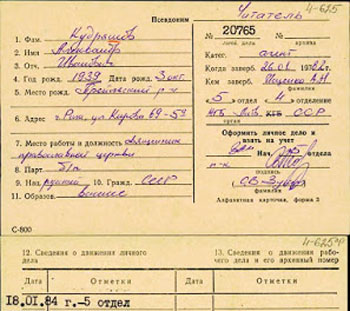 Псевдоним Читатель 4-625
1. Фам. Кудряшов
2. Имя Александр
3. Отч. Иванович
4. Год рожд. 1939 Дата рожд. 3 окт.
5. Место рожд.
6. Адрес г. Рига, ул. Кирова 69-5
7. Место работы и должность священник
православной церкви
8. Парт. б/п
9. Нац. русский 10. Гражд. СССР
11. Образов. высшее
С-800
№ 20765
лич. дела № архива
Катег. агент
Когда завербо. 26.01 1982 г.
Кем завербо. Ищенко
фамилия
5 4 отделение
отдел
КГБ Латв. ССР
орган
Оформить личное дело и
взять на учет
Нач. 5 отдела
п-к
фамилия
Алфавитная карточка, форма 3
4-625
12. Сведения о движении личного
дела
13. Сведения о движении рабочего
дела и его архивный номер
Дата Отметки Дата Отметки
18.01.84 г.-5 отдел